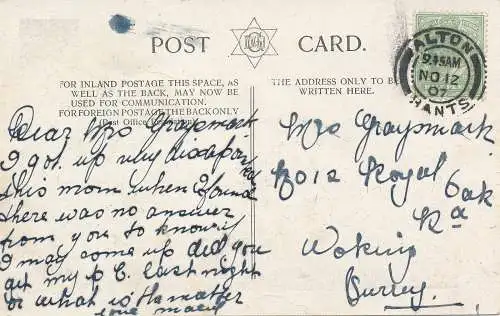 POST CARD.
ALTON
9.15AM
NO 12
07
HANTS
FOR INLAND POSTAGE THIS SPACE, AS
WELL AS THE BACK, MAY NOW BE
USED FOR COMMUNICATION.
FOR FOREIGN POSTAGE THE BACK ONLY
(Post Office Regulation).
THE ADDRESS ONLY TO BE
WRITTEN HERE.
Dear Mrs Graysmark
I got up very disapointed
this morn when I found
there was no answer
from you so know if
I may come up did you
get my p C. last night
or what is the matter
love
Mrs Graysmark
Royal Oak
Rd
Woking
Surrey.